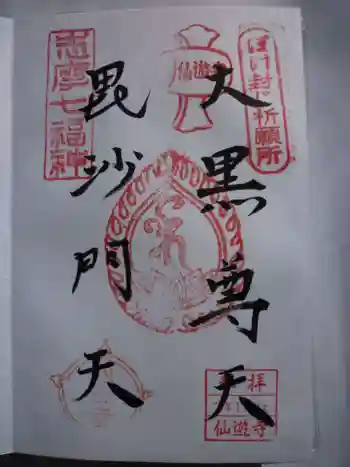 ぼけ封じ祈願所
大黒尊天
仙遊寺
拝
仙遊寺
毘沙門天
志摩七福神